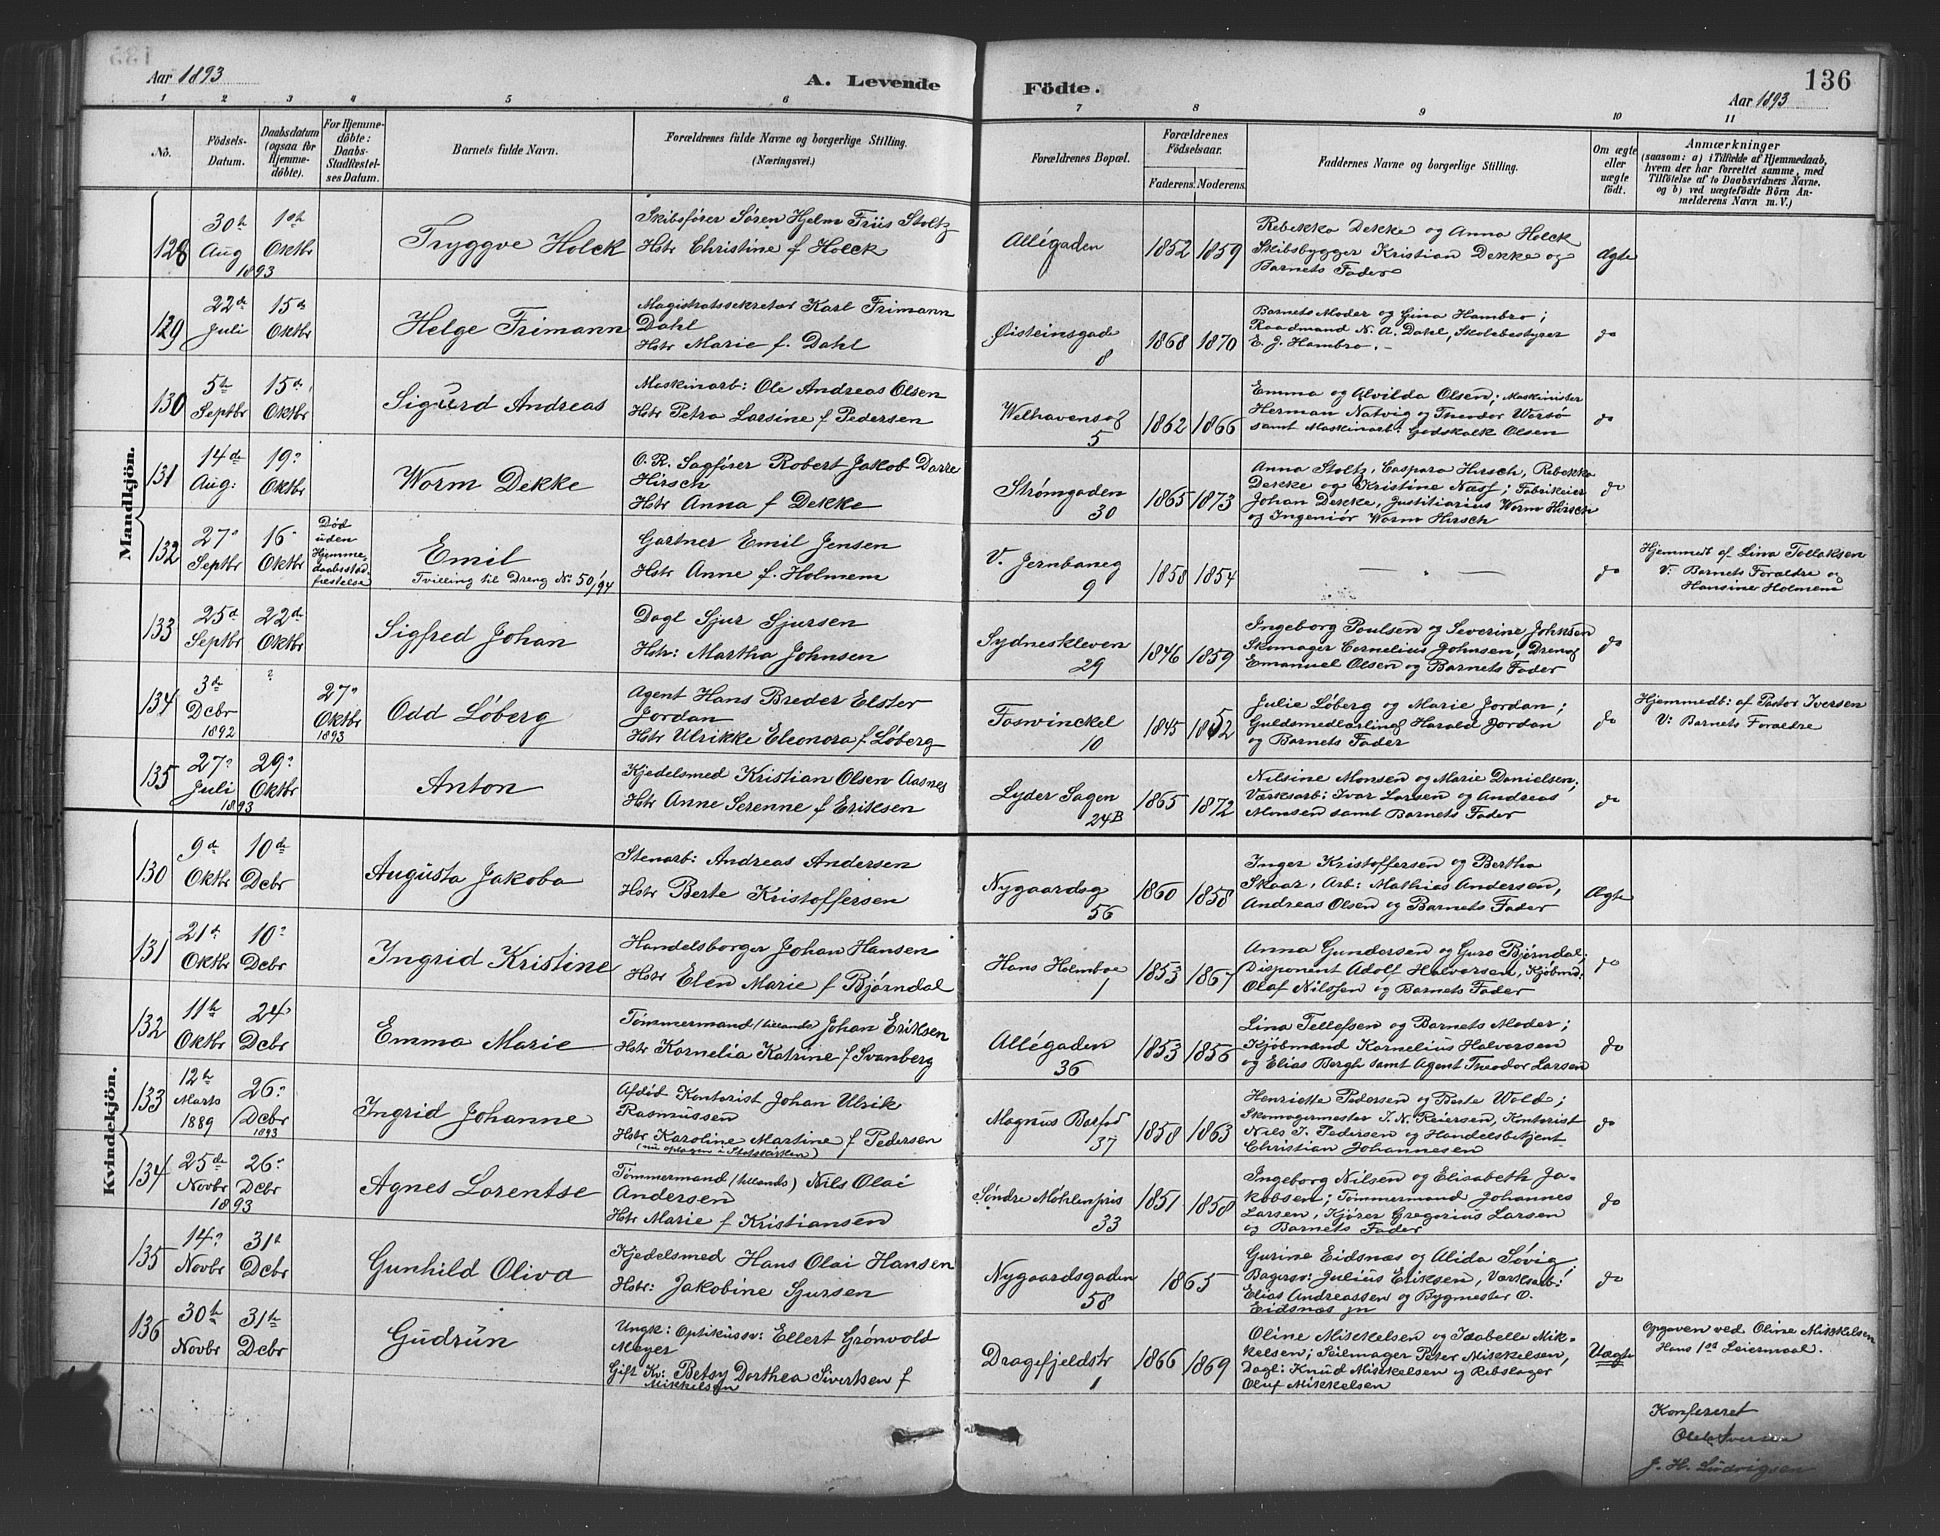 Aar 1893
A. Levende Födte.
136
Aar 1893
1 2 3 4 5 6 7 8 9 10 11
No.
Födsels-
Datum.
Daabsdatum
(ogsaa for
Hjemme-
döbte).
For Hjemme-
döbte:
Daabs-
Stadfæstel-
ses Datum.
Barnets fulde Navn.
Forældrenes fulde Navne og borgerlige Stilling.
(Næringsvei.)
Forældrenes Bopæl.
Forældrenes
Födselsaar.
Faderens. Moderens.
Faddernes Navne og borgerlige Stilling.
Om ægte
eller
uægte
födt.
Anmærkninger
(saasom: a) i Tilfælde af Hjemmedaab,
hvem der har forrettet samme, med
Tilföielse af to Daabsvidners Navne,
og b) ved uægtefödte Börn An-
melderens Navn m. V.)
Mandkjön.
128
30te
Aug
1893
1ste
Oktbr
Tryggve Holck
Skibsfører Søren Hjelm Friis Stoltz
Hstr Christine f Holck
Allégaden
1852 1859
Rebekka Dekke og Anna Holck
Skibsbygger Kristian Dekke og
Barnets Fader
Ægte
129
22de
Juli
15de
Oktbr
Helge Frimann
Magistratssekretær Karl Frimann
Dahl
Hstr Marie f. Dahl
Øisteinsgad
8
1868 1870
Barnets Moder og Gina Hambro;
Raadmand N. A. Dahl, Skolebestyrer
E. J. Hambro.-
do
130
5te
Septbr
15de
Oktbr
Sigurd Andreas
Maskinarb: Ole Andreas Olsen
Hstr Petra Larsine f Pedersen
Welhavensg
5
1862 1866
Emma og Alvilda Olsen; Maskinister
Herman Natvig og Theodor Worsø
samt Maskinarb: Godskalk Olsen
do
131
14de
Aug:
19"
Oktbr
Worm Dekke
O. R. Sagfører Robert Jakob Darre
Hirsch
Hstr Anna f Dekke
Strømgaden
30
1865 1873
Anna Stoltz, Caspara Hirsch, Rebekka
Dekke og Kristine Næss; Fabrikeier
Johan Dekke, Justitiarius Worm Hirsch
og Ingeniør Worm Hirsch
do
132
27"
Septbr
16"
Oktbr
Død
uden
Hjemme-
daabsstad-
fæstelse
Emil
Tvilling til Dreng No 50/94
Gartner Emil Jensen
Hstr Anne f. Holmem
V. Jernbaneg
9
1858 1854
— " —
do
Hjemmedt af Lina Tollaksen
V: Barnets Forældre og
Hansine Holmem
133
25de
Septbr
22de
Oktbr
Sigfred Johan
Dagl Sjur Sjursen
Hstr: Martha Johnsen
Sydneskleven
29
1846 1859
Ingeborg Poulsen og Severine Johnsen
Skomager Cornelius Johnsen, Dreng
Emanuel Olsen og Barnets Fader
do
134
3de
Dcbr
1892
?
27"
Oktbr
1893
Odd Løberg
Agent Hans Breder Elster
Jordan
Hstr Ulrikke Eleonora f Løberg
Foswinckel
10
1845 1852
Julie Løberg og Marie Jordan;
Guldsmedlærling Harald Jordan
og Barnets Fader
do
Hjemmedbt: af Pastor Iversen
V: Barnets Forældre
135
27"
Juli
1893
29"
Oktbr
Anton
Kjedelsmed Kristian Olsen Aasnes
Hstr Anne Serenne f Eriksen
Lyder Sagen
24B
1865 1872
Nilsine Monsen og Marie Danielsen;
Værksarb: Ivar Larsen og Andreas
Monsen samt Barnets Fader
do
Kvindekjön.
130
9de
Oktbr
10de
Dcbr
Augusta Jakoba
Stenarb: Andreas Andersen
Hstr Berte Kristoffersen
Nygaardsg
56
1860 1858
Inger Kristoffersen og Bertha
Skaar, Arb: Mathias Andersen,
Andreas Olsen og Barnets Fader
Ægte
131
21de
Oktbr
10"
Dcbr
Ingrid Kristine
Handelsborger Johan Hansen
Hstr Elen Marie f Bjørndal
Hans Holmboe
1
1853 1867
Anna Gundersen og Guro Bjørndal;
Disponent Adolf Halvorsen, Kjøbmd
Olaf Nilssen og Barnets Fader
do
132
11te
Oktbr
24"
Dcbr
Emma Marie
Tømmermand (tillands) Johan Eriksen
Hstr Kornelia Katrine f Svanberg
Allégaden
36
1853 1856
Lina Tellefsen og Barnets Moder;
Kjøbmand Kornelius Halvorsen
og Elias Bergh samt Agent Theodor Larsen
do
133
12te
Marts
1889
26"
Dcbr
1893
Ingrid Johanne
Afdød Kontorist Johan Ulrik
Rasmussen
Hstr Karoline Martine f Pedersen
(nu optagen i Statskirken)
Magnus Barfod
37
1858 1863
Henriette Pedersen og Berte Wold;
Skomagermester J. N. Reiersen, Kontorist
Nils J. Pedersen og Handelsbetjent
Christian Johannesen
do
134
25de
Novbr
1893
26"
Dcbr
Agnes Lorentse
Tømmermand (tillands) Nils Olai
Andersen
Hstr Marie f Kristiansen
Søndre Møhlenpris
33
1851 1858
Ingeborg Nilsen og Elisabeth Ja-
kobsen; Tømmermand Johannes
Larsen, Kjører Gregorius Larsen
og Barnets Fader
do
135
14"
Novbr
31te
Dcbr
Gunhild Oliva
Kjedelsmed Hans Olai Hansen
Hstr: Jakobine Sjursen
Nygaardsgaden
58
1865
Gurine Eidsnæs og Alida Søvig;
Bagersv: Julius Eriksen, Værksarb:
Elias Andreassen og Bygmester O.
Eidsnæs jn
do
136
30te
Novbr
31te
Dcbr
Gudrun
Ungk: Optikussv: Ellert Grønvold
Meyer
Gift Kv: Betsy Dorthea Sivertsen f
Mikkelsen
Dragefjeldstr
1
1866 1869
Oline Mikkelsen og Isabelle Mik-
kelsen; Seilmager Peter Mikkelsen,
Dagl: Knud Mikkelsen og Rebslager
Oluf Mikkelsen
Uægte
Opgaven ved Oline Mikkelsen
Hans 1ste Leiermaal.
Konfereret
Ole Iversen
J. H. Ludvigsen